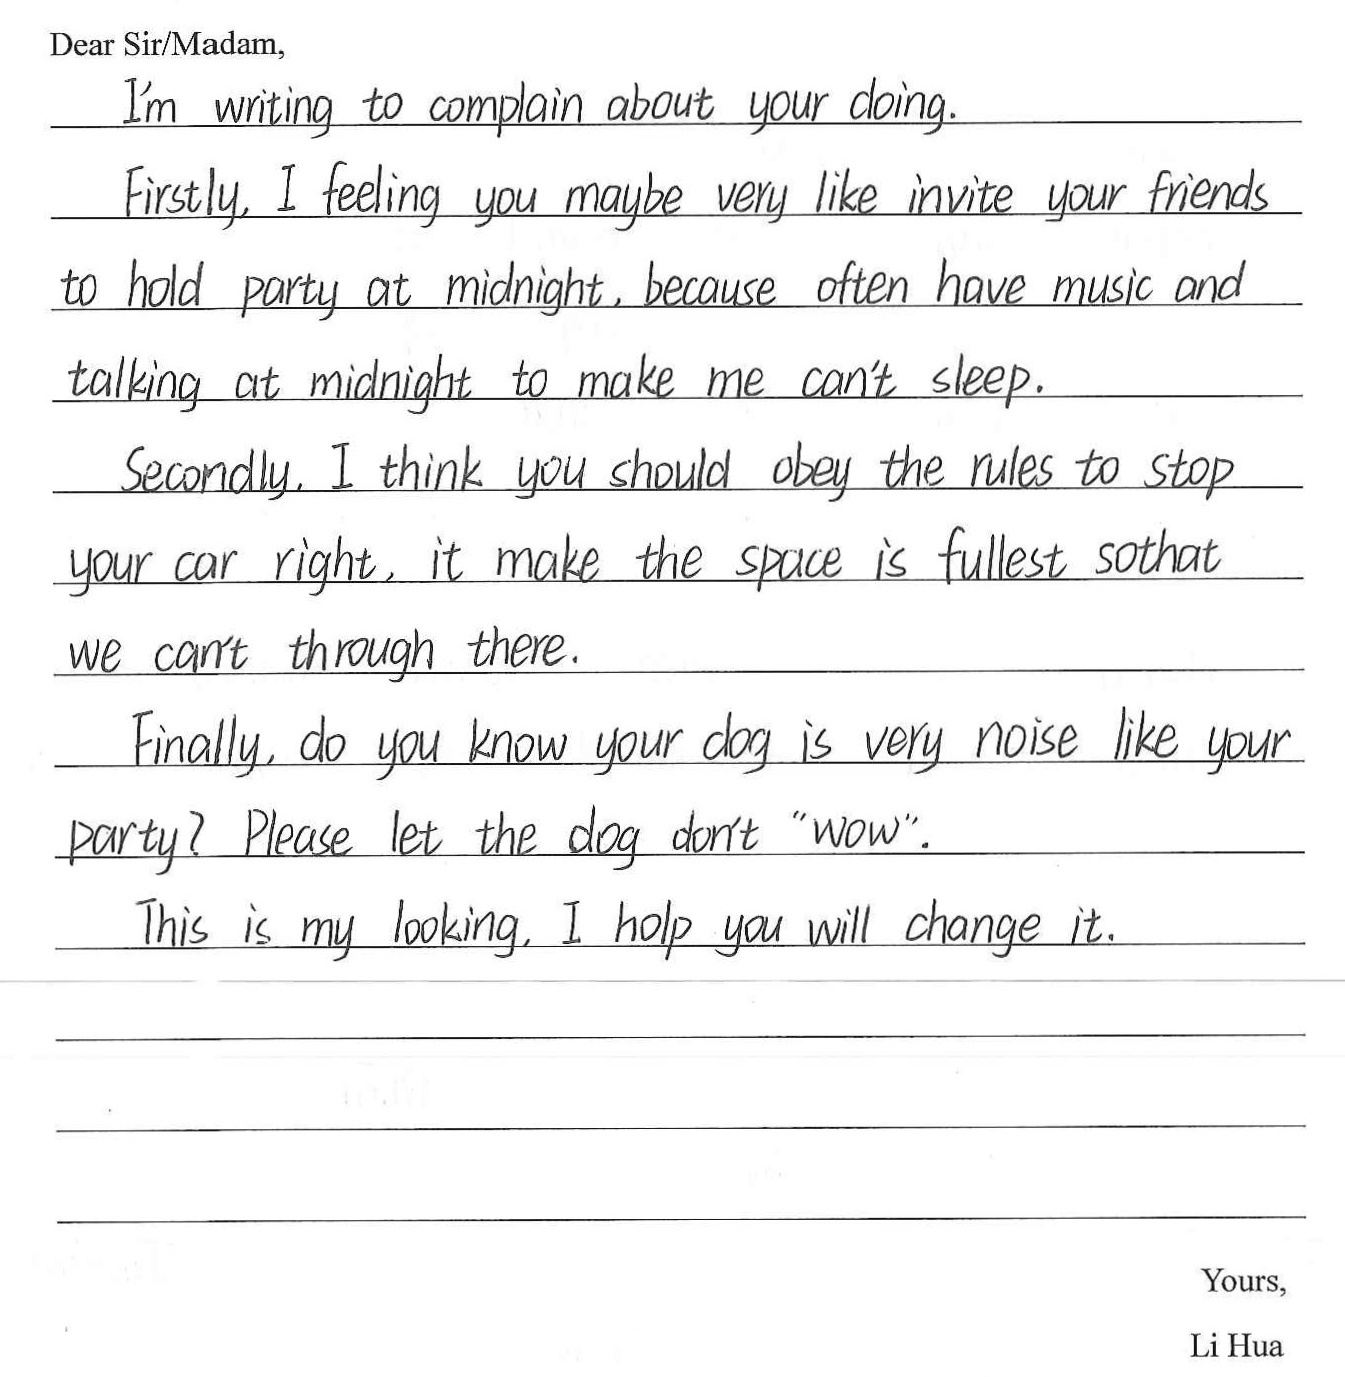 Dear Sir/Madam,
I'm writing to complain about your doing.
Firstly, I feeling you maybe very like invite your friends
to hold party at midnight, because often have music and
talking at midnight to make me can't sleep.
Secondly, I think you should obey the rules to stop
your car right, it make the space is fullest sothat
we can't through there.
Finally, do you know your dog is very noise like your
party? Please let the dog don't "wow".
This is my looking, I holp you will change it.
Yours,
Li Hua